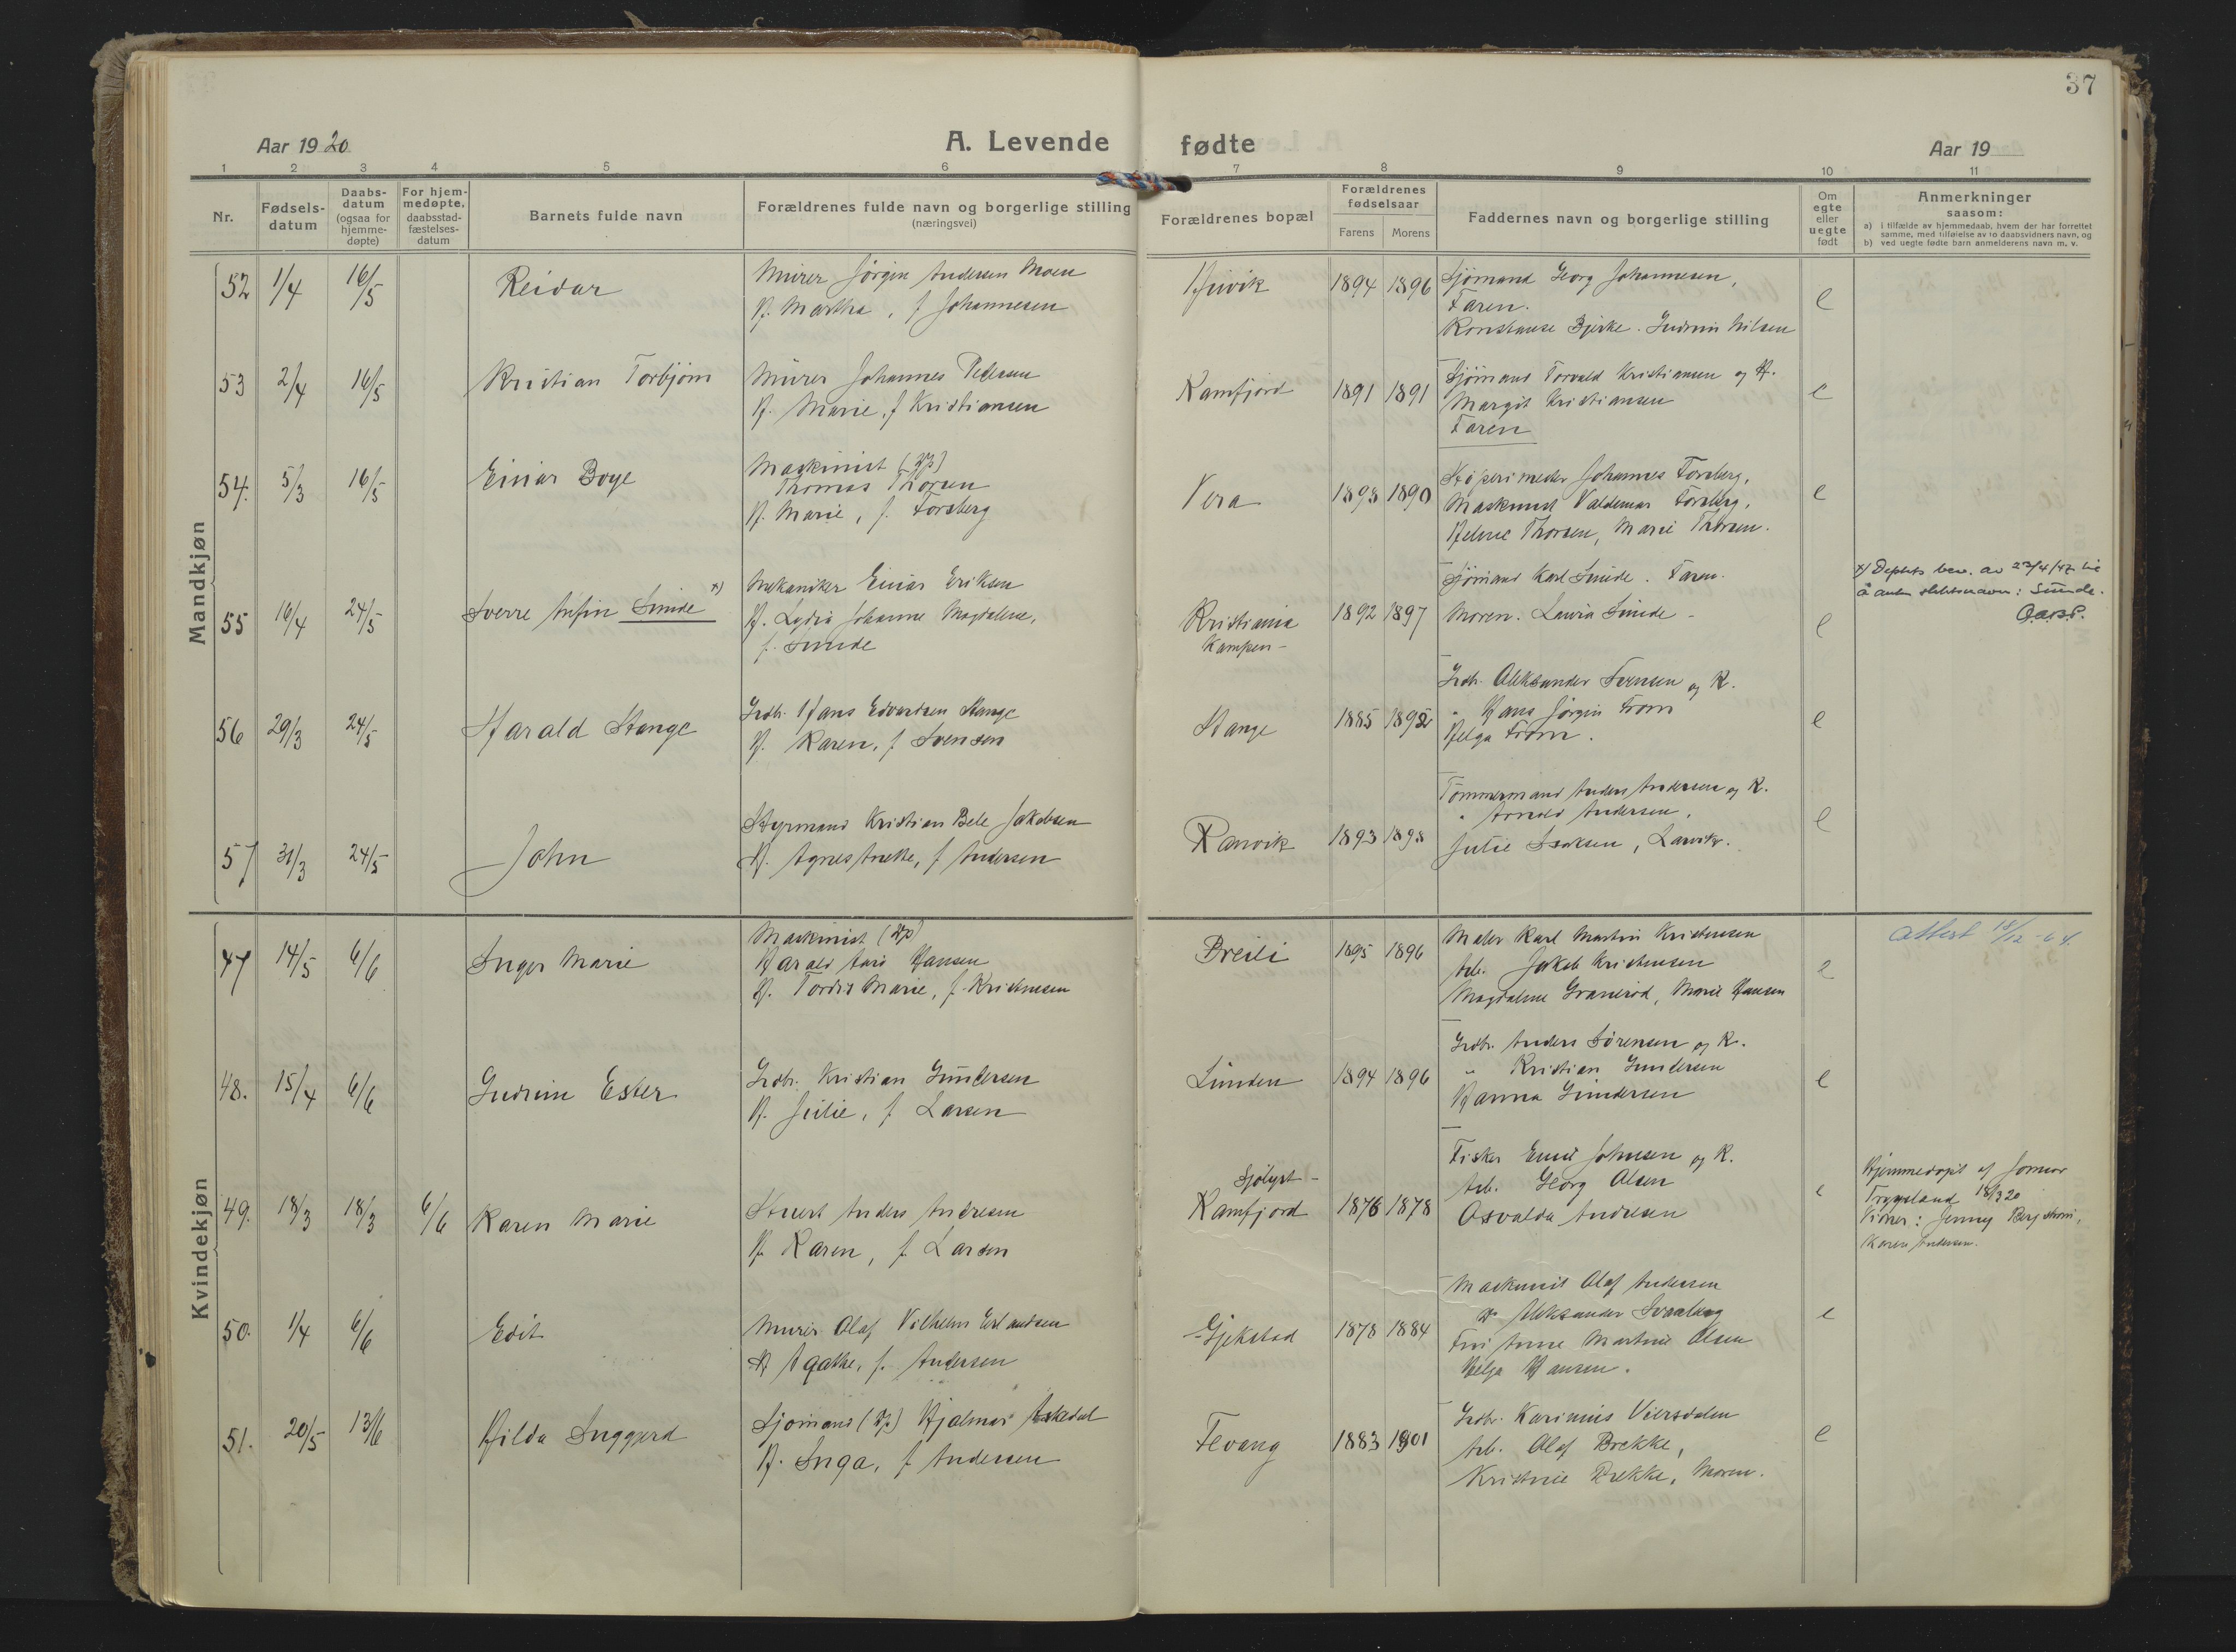 37
Aar 1920
A. Levende fødte
Aar 19
1 2 3 4 5 6 7 8 9 10 11
Nr.
Fødsels-
datum
Daabs-
datum
(ogsaa for
hjemme-
døpte)
For hjem-
medøpte,
daabsstad-
fæstelses-
datum
Barnets fulde navn
Forældrenes fulde navn og borgerlige stilling
(næringsvei)
Forældrenes bopæl
Forældrenes
fødselsaar
Farens Morens
Faddernes navn og borgerlige stilling
Om
egte
eller
uegte
født
Anmerkninger
saasom:
a) i tilfælde av hjemmedaab, hvem der har forrettet
samme, med tilføielse av to daabsvidners navn, og
b) ved uegte fødte barn anmelderens navn m. v.
Mandkjøn
52 1/4 16/5 Reidar
Murer Jörgen Andersen Moen
H. Martha, f Johannesen
1894 1896
Sjömand Georg Johannesen,
Faren.
Konstanse Bjerke. Gudrun Nilsen
e
53 2/4 16/5 Kristian Torbjørn
Murer Johannes Pedersen
H. Marie, f Kristiansen
Kamfjord 1891 1891
Sjömand Torvald Kristiansen og H.
Margit Kristiansen
Faren
e
54. 5/3 16/5 Einar Boye
Maskinist
Thomas Thorsen
H. Marie, f. Forsberg
Vera 1893 1890
Johannes Forsberg,
Maskinist Valdemar Forsberg,
Helene Thorsen, Marie Thorsen.
e
55 16/4 24/5 Sverre Anfin Sunde x)
Mekaniker Einar Eriksen
H. Lydia Johanne Magdalene,
f. Sunde
Kristiania
Kampen -
1892 1897
Sjömand Karl Sunde. Faren.
Moren. Laura Sunde -
e
x) Depts bev. av 23/4/47 til
å anta slektsnavn: Sunde.
56 29/3 24/5 Harald Stange
Grdbr. Hans Edvardsen Stange
H. Karen, f Svensen
Stange 1885 1892
Grdb. Aleksander Svensen og K.
" Hans Jörgen From
Helga From.
e
57 31/3 24/5 John
Styrmand Kristian Bele Jakobsen
H. Agnes Anette, f Andersen
Ranvik 1893 1898
Tömmermand Anders Andersen og K.
" Arnold Andersen,
Julie Isaksen, Larvik.
e
Kvindekjøn
47 14/5 6/6 Inger Marie
Maskinist
Harald Hansen
H. Tordis Marie, f. Kristensen
Breili 1895 1896
Maler Karl Martin Kristensen
Arb. Jakob Kristensen
Magdalene Granerød, Marie Hansen
e
Attest 15/12 - 64.
48. 15/4 6/6 Gudrun Ester
Grdbr. Kristian Gundersen
H. Julie, f Larsen
Lunden 1894 1896
Grdbr. Anders Sørensen og K.
" Kristian Gundersen
Hanna Gundersen
e
49. 18/3 18/3 6/6 Karen Marie
Stuert Anders Andresen
H. Karen, f. Larsen
Sjölyst -
Kamfjord 1876 1878
Fisker Emil Johnsen og K.
Arb. Georg Olsen
Osvalda Andresen
e
Hjemmedøpt af Jormor
Trygsland 18/3 20
Vidner: Jenny Bergstrøm,
Karen Andersen.
50. 1/4 6/6 Edit
Murer Olaf Vilhelm Erlandsen
H Agathe, f. Andersen
Gjekstad 1878 1884
Maskinist Olaf Andersen
Aleksander Svaaberg
Anne Martine Olsen
Helga Hansen.
e
51. 20/5 13/6 Hilda Inggerd
Sjömand Hjalmar Askedal
H. Inga, f Andersen
Fevang 1883 1901
Grdbr. Karinius Viersdalen
Arb. Olaf Brekke,
Kristine Brekke, Moren.
e